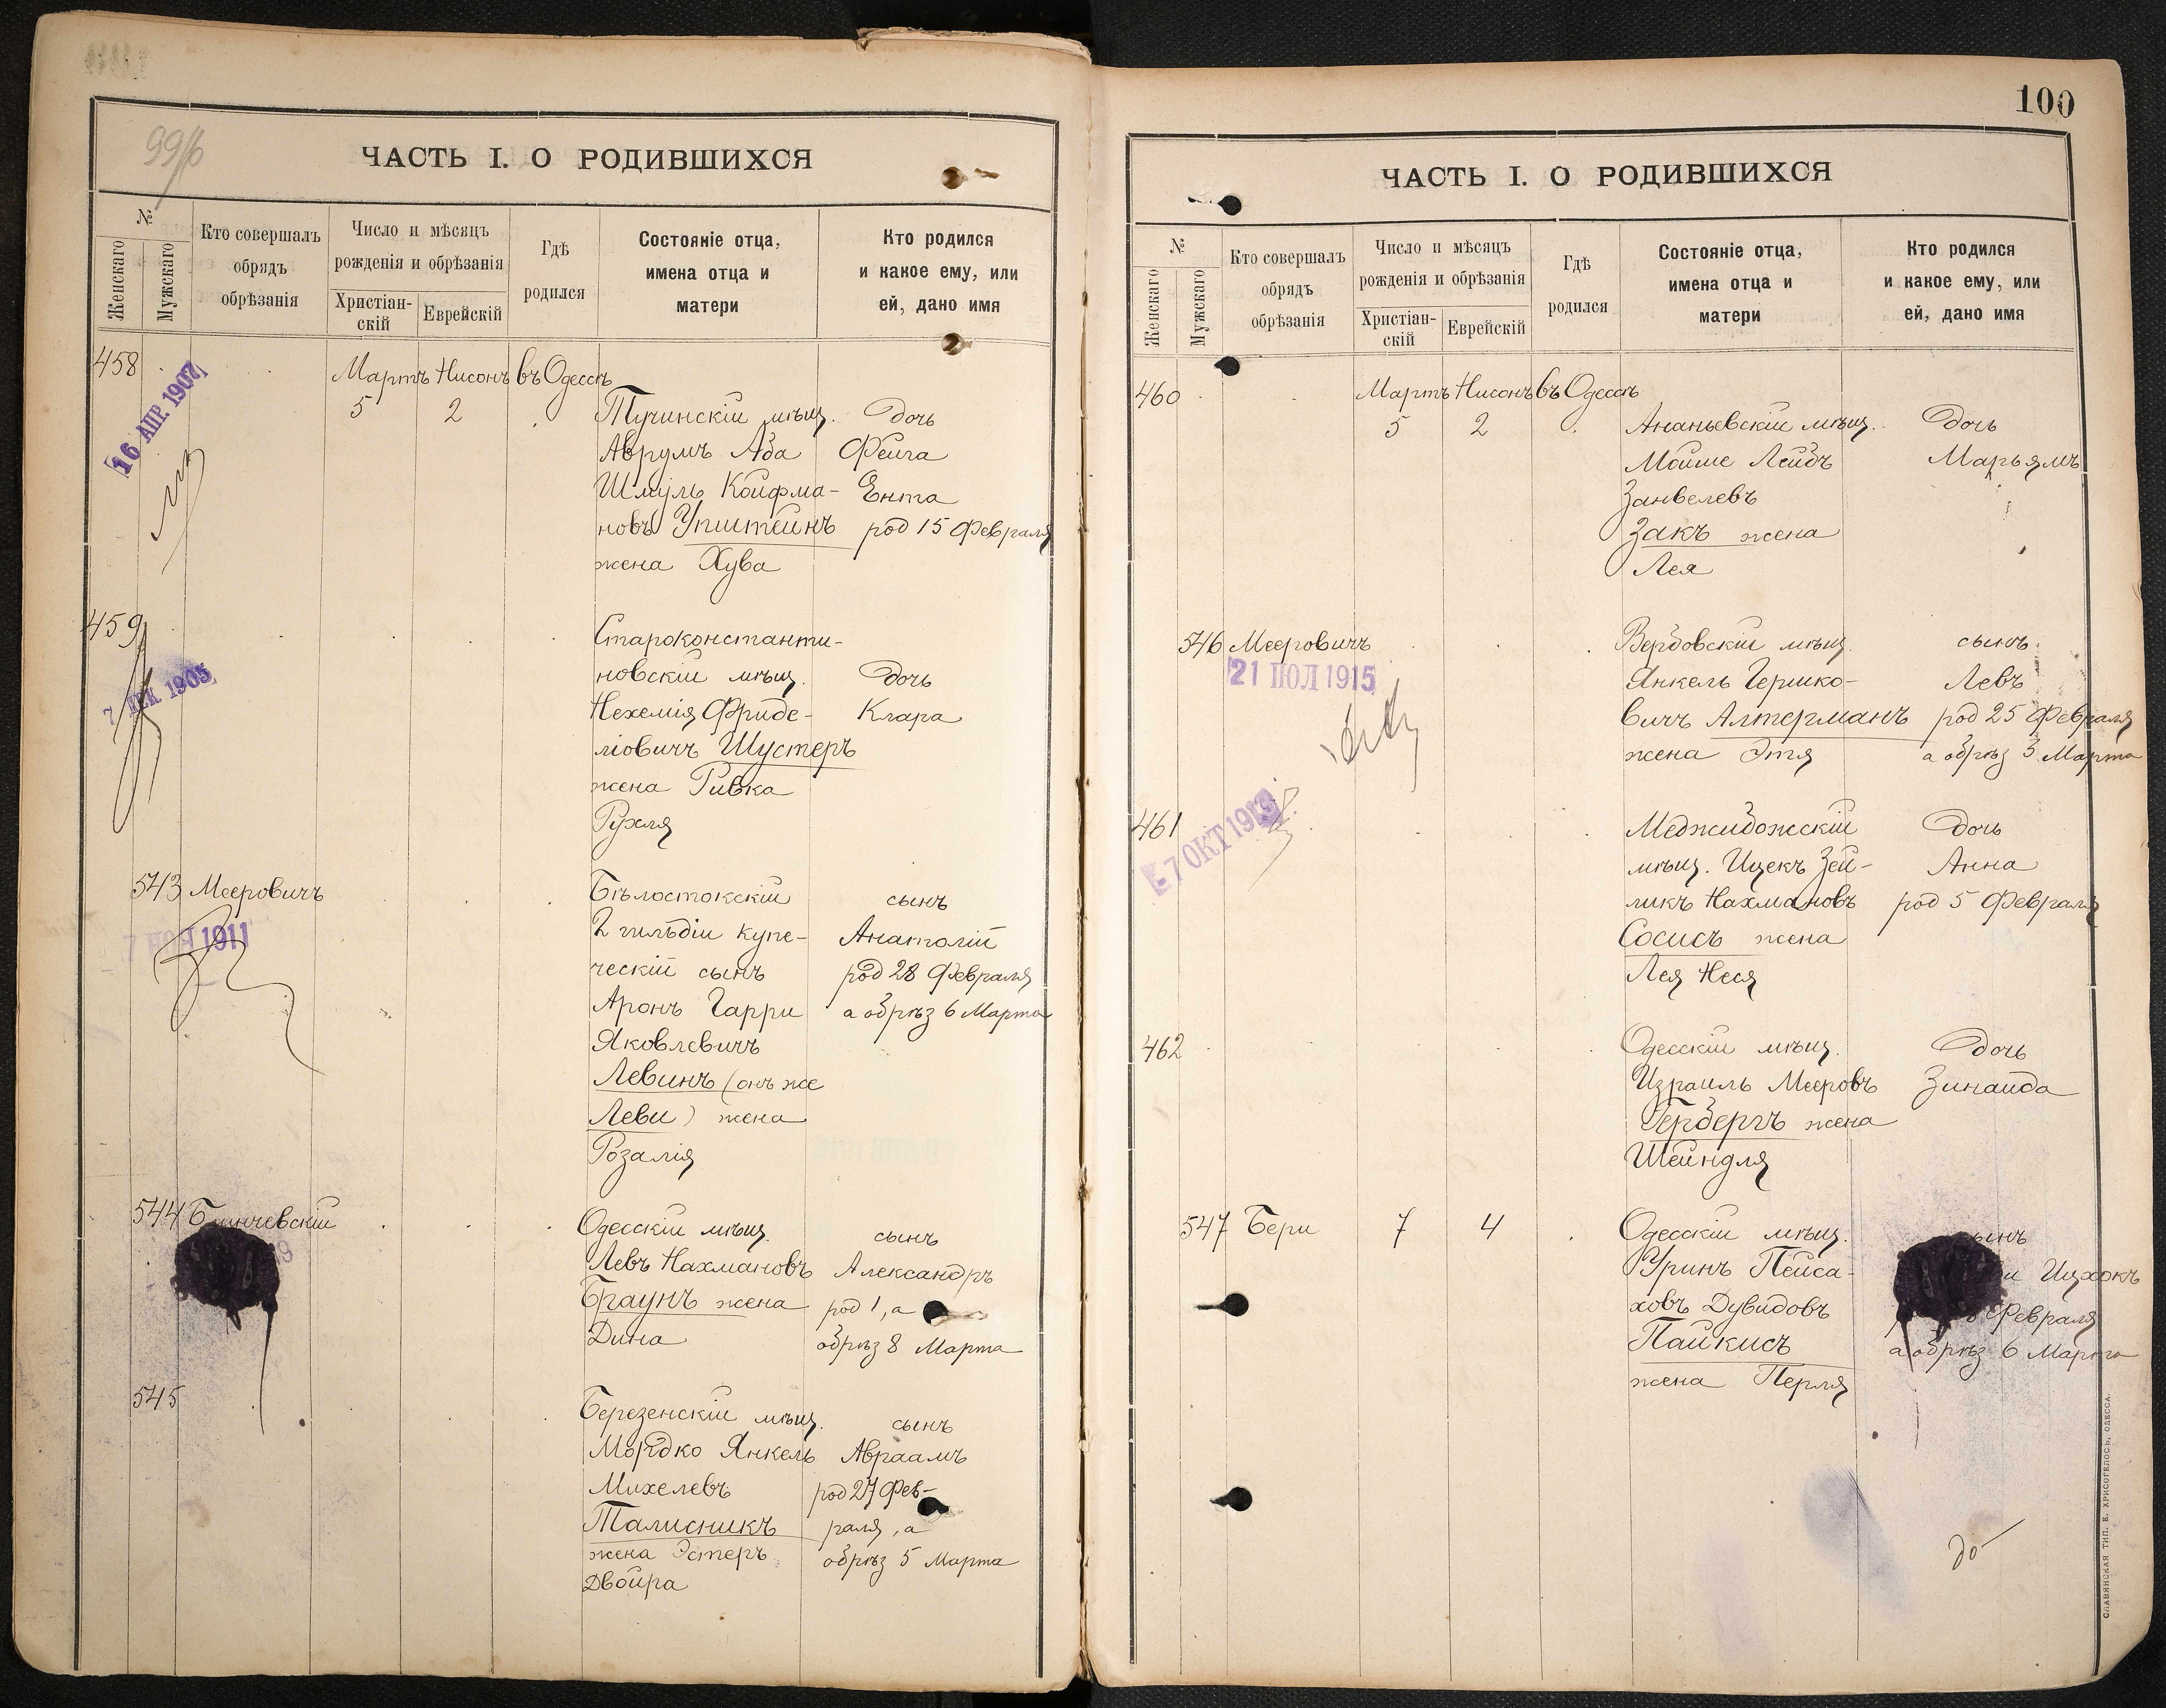 99/б
ЧАСТЬ I. О РОДИВШИХСЯ
№
Женскаго
Мужскаго
Кто совершалъ
обрядъ
обрѣзанія
Число и мѣсяцъ
рожденія и обрѣзанія
Христіан-
скій
Еврейскій
Гдѣ
родился
Состояніе отца,
имена отца и
матери
Кто родился
и какое ему, или
ей, дано имя
458
16 АПР. 1907
Мартъ Нисонъ въ Одессѣ
5 2
Тучинскій мѣщ. дочь
Аврумъ Аба Фейга
Шмуль Койфма- Ента
новъ Упштейнъ род 15 Февраля
жена Хува
459
7 ДЕК 1905
Староконстанти-
новскій мѣщ. дочь
Нехемія Фриде- Клара
ліовичъ Шустеръ
жена Ривка
Рухля
543 Мееровичъ
1911
Бѣлостокскій сынъ
2 гильдіи купе- Анатолій
ческій сынъ род 28 Февраля
Аронъ Гарри а обрѣз 6 Марта
Яковлевичъ
Левинъ (онъ же
Леви) жена
Розалія
544
Одесскій мѣщ. сынъ
Левъ Нахмановъ Александръ
Браунъ жена род 1, а
Дина обрѣз 8 Марта
545
Березенскій мѣщ. сынъ
Мордко Янкель Авраамъ
Михелевъ род 27 Фев-
Талисникъ раля, а
жена Эстеръ обрѣз 5 Марта
Двойра
100
ЧАСТЬ I. О РОДИВШИХСЯ
№
Женскаго
Мужскаго
Кто совершалъ
обрядъ
обрѣзанія
Число и мѣсяцъ
рожденія и обрѣзанія
Христіан-
скій
Еврейскій
Гдѣ
родился
Состояніе отца,
имена отца и
матери
Кто родился
и какое ему, или
ей, дано имя
460
Мартъ Нисонъ въ Одессѣ
5 2
Ананьевскій мѣщ. дочь
Мойше Лейбъ Марьямъ
Занвелевъ
Закъ жена
Лея
546 Мееровичъ
21 ІЮЛ 1915
Вербовскій мѣщ. сынъ
Янкель Гершко- Левъ
вичъ Алтерманъ род 25 Февраля
жена Этя а обрѣз 3 Марта
461
7 ОКТ 1913
Меджибожскій дочь
мѣщ. Ицекъ Зей- Анна
ликъ Нахмановъ род 5 Февраля
Сосисъ жена
Лея Неся
462
Одесскій мѣщ. дочь
Израиль Мееровъ Зинаида
Гербергъ жена
Шейндля
547 Бери 7 4
Одесскій мѣщ. сынъ
Уринъ Пейса- Ицхокъ
ховъ Дувидовъ Февраля
Пайкисъ а обрѣз 6 Марта
жена Перля
СЛАВЯНСКАЯ ТИП. Е. ХРИСОГЕЛОСЪ, ОДЕССА.